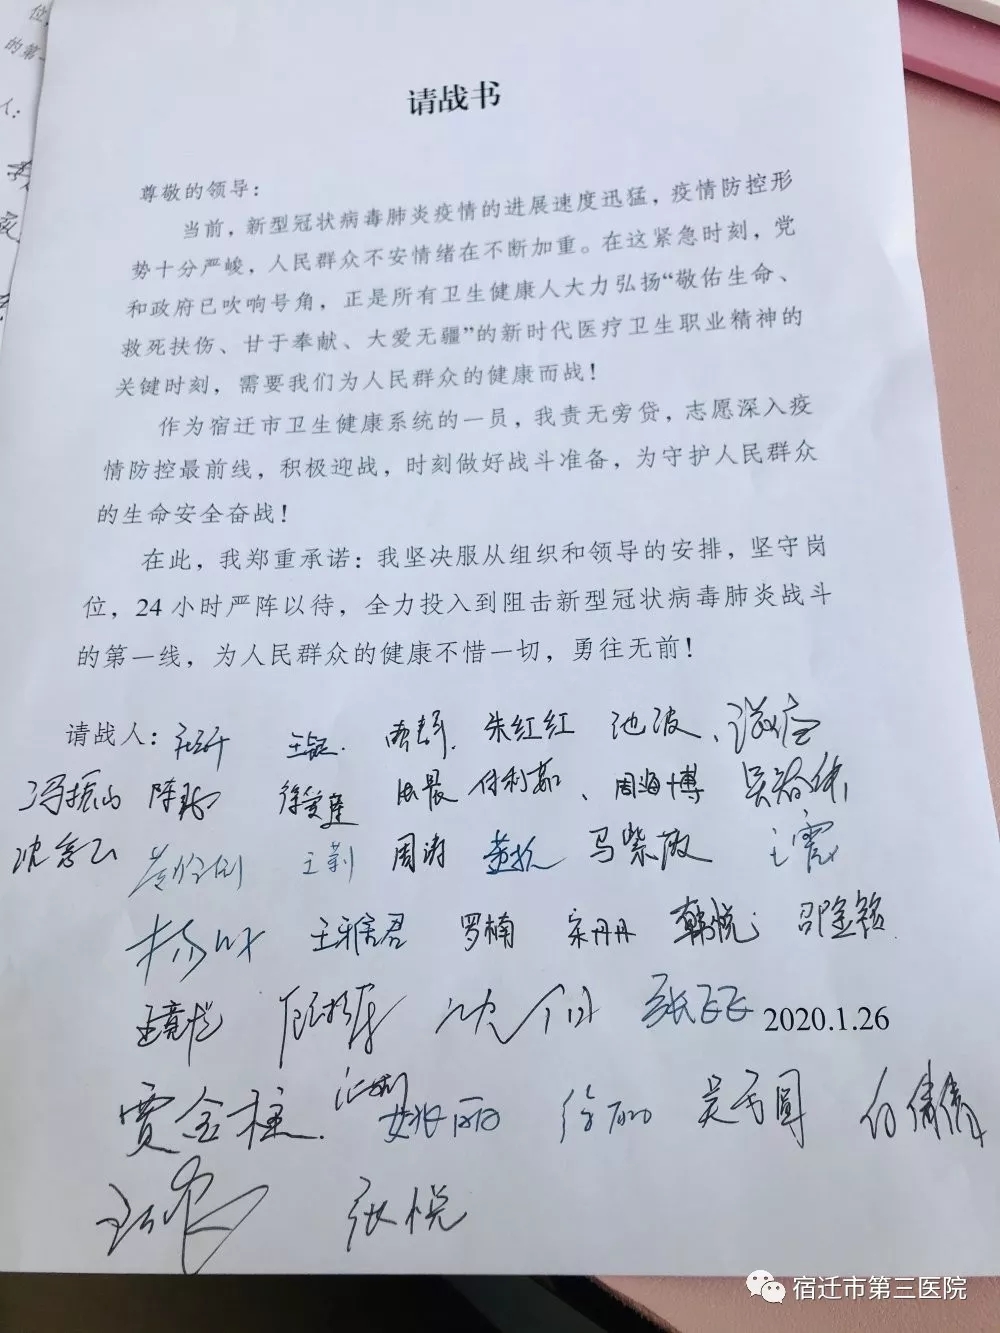 位,
的第一
人：
请战书
尊敬的领导：
当前，新型冠状病毒肺炎疫情的进展速度迅猛，疫情防控形
势十分严峻，人民群众不安情绪在不断加重。在这紧急时刻，党
和政府已吹响号角，正是所有卫生健康人大力弘扬“敬佑生命、
救死扶伤、甘于奉献、大爱无疆”的新时代医疗卫生职业精神的
关键时刻，需要我们为人民群众的健康而战！
作为宿迁市卫生健康系统的一员，我责无旁贷，志愿深入疫
情防控最前线，积极迎战，时刻做好战斗准备，为守护人民群众
的生命安全奋战！
在此，我郑重承诺：我坚决服从组织和领导的安排，坚守岗
位，24 小时严阵以待，全力投入到阻击新型冠状病毒肺炎战斗
的第一线，为人民群众的健康不惜一切，勇往无前！
请战人： 朱红红 池波、
冯振山 周海博
王莉 周涛 马紫薇
罗楠 宋丹丹 韩悦
张飞飞 2020.1.26
贾金柱. 姚丽 徐丽
张悦
宿迁市第三医院